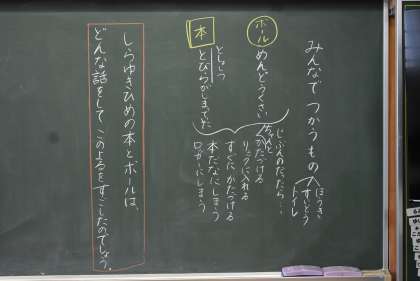 みんなで つかうもの
ほうき
すいどう
トイレ
ボール
めんどうくさい
じぶんのだったら…
ちゃんと
かたづける
リュックに入れる
すぐにかたづける
本だなにしまう
ロッカーにしまう
本
としょしつ
とびらがしまってた
しらゆきひめの本とボールは、
どんな話をして、このよるをすごしたのでしょう。